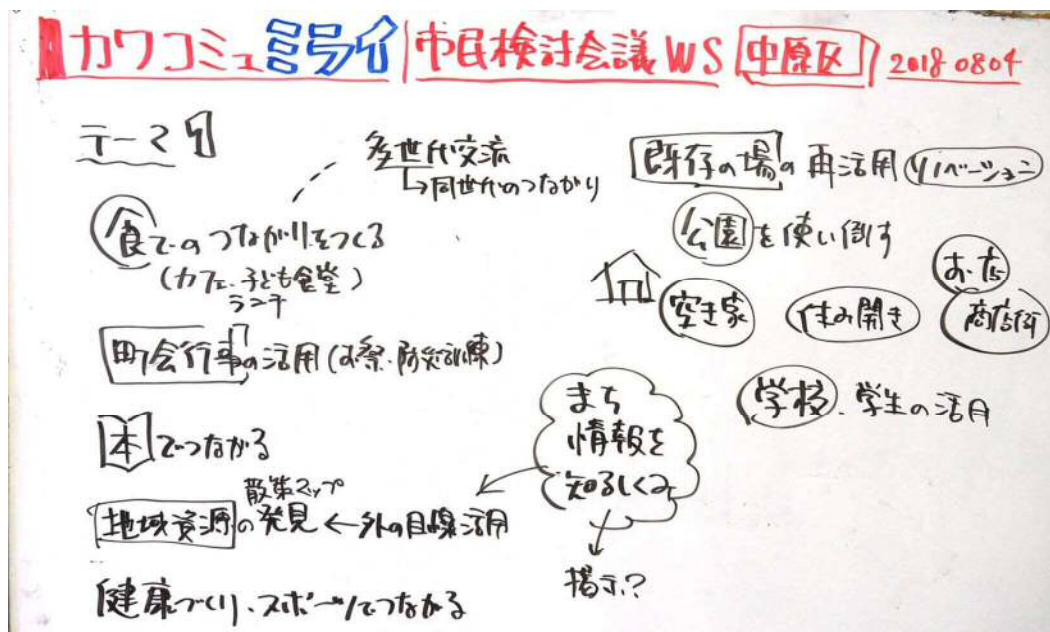 カワコミュミライ 市民検討会議WS 中原区 2018 0804
テーマ1
多世代交流
↳同世代のつながり
食でのつながりをつくる
(カフェ・子ども食堂)
ランチ
町会行事の活用(お祭・防災訓練)
本でつながる
散策マップ
地域資源の発見←外の目線活用
健康づくり、スポーツでつながる
まち
情報を
知るしくみ
掲示?
既存の場の再活用 リノベーション
公園を使い倒す
お店
空き家 住み開き 商店街
学校、学生の活用